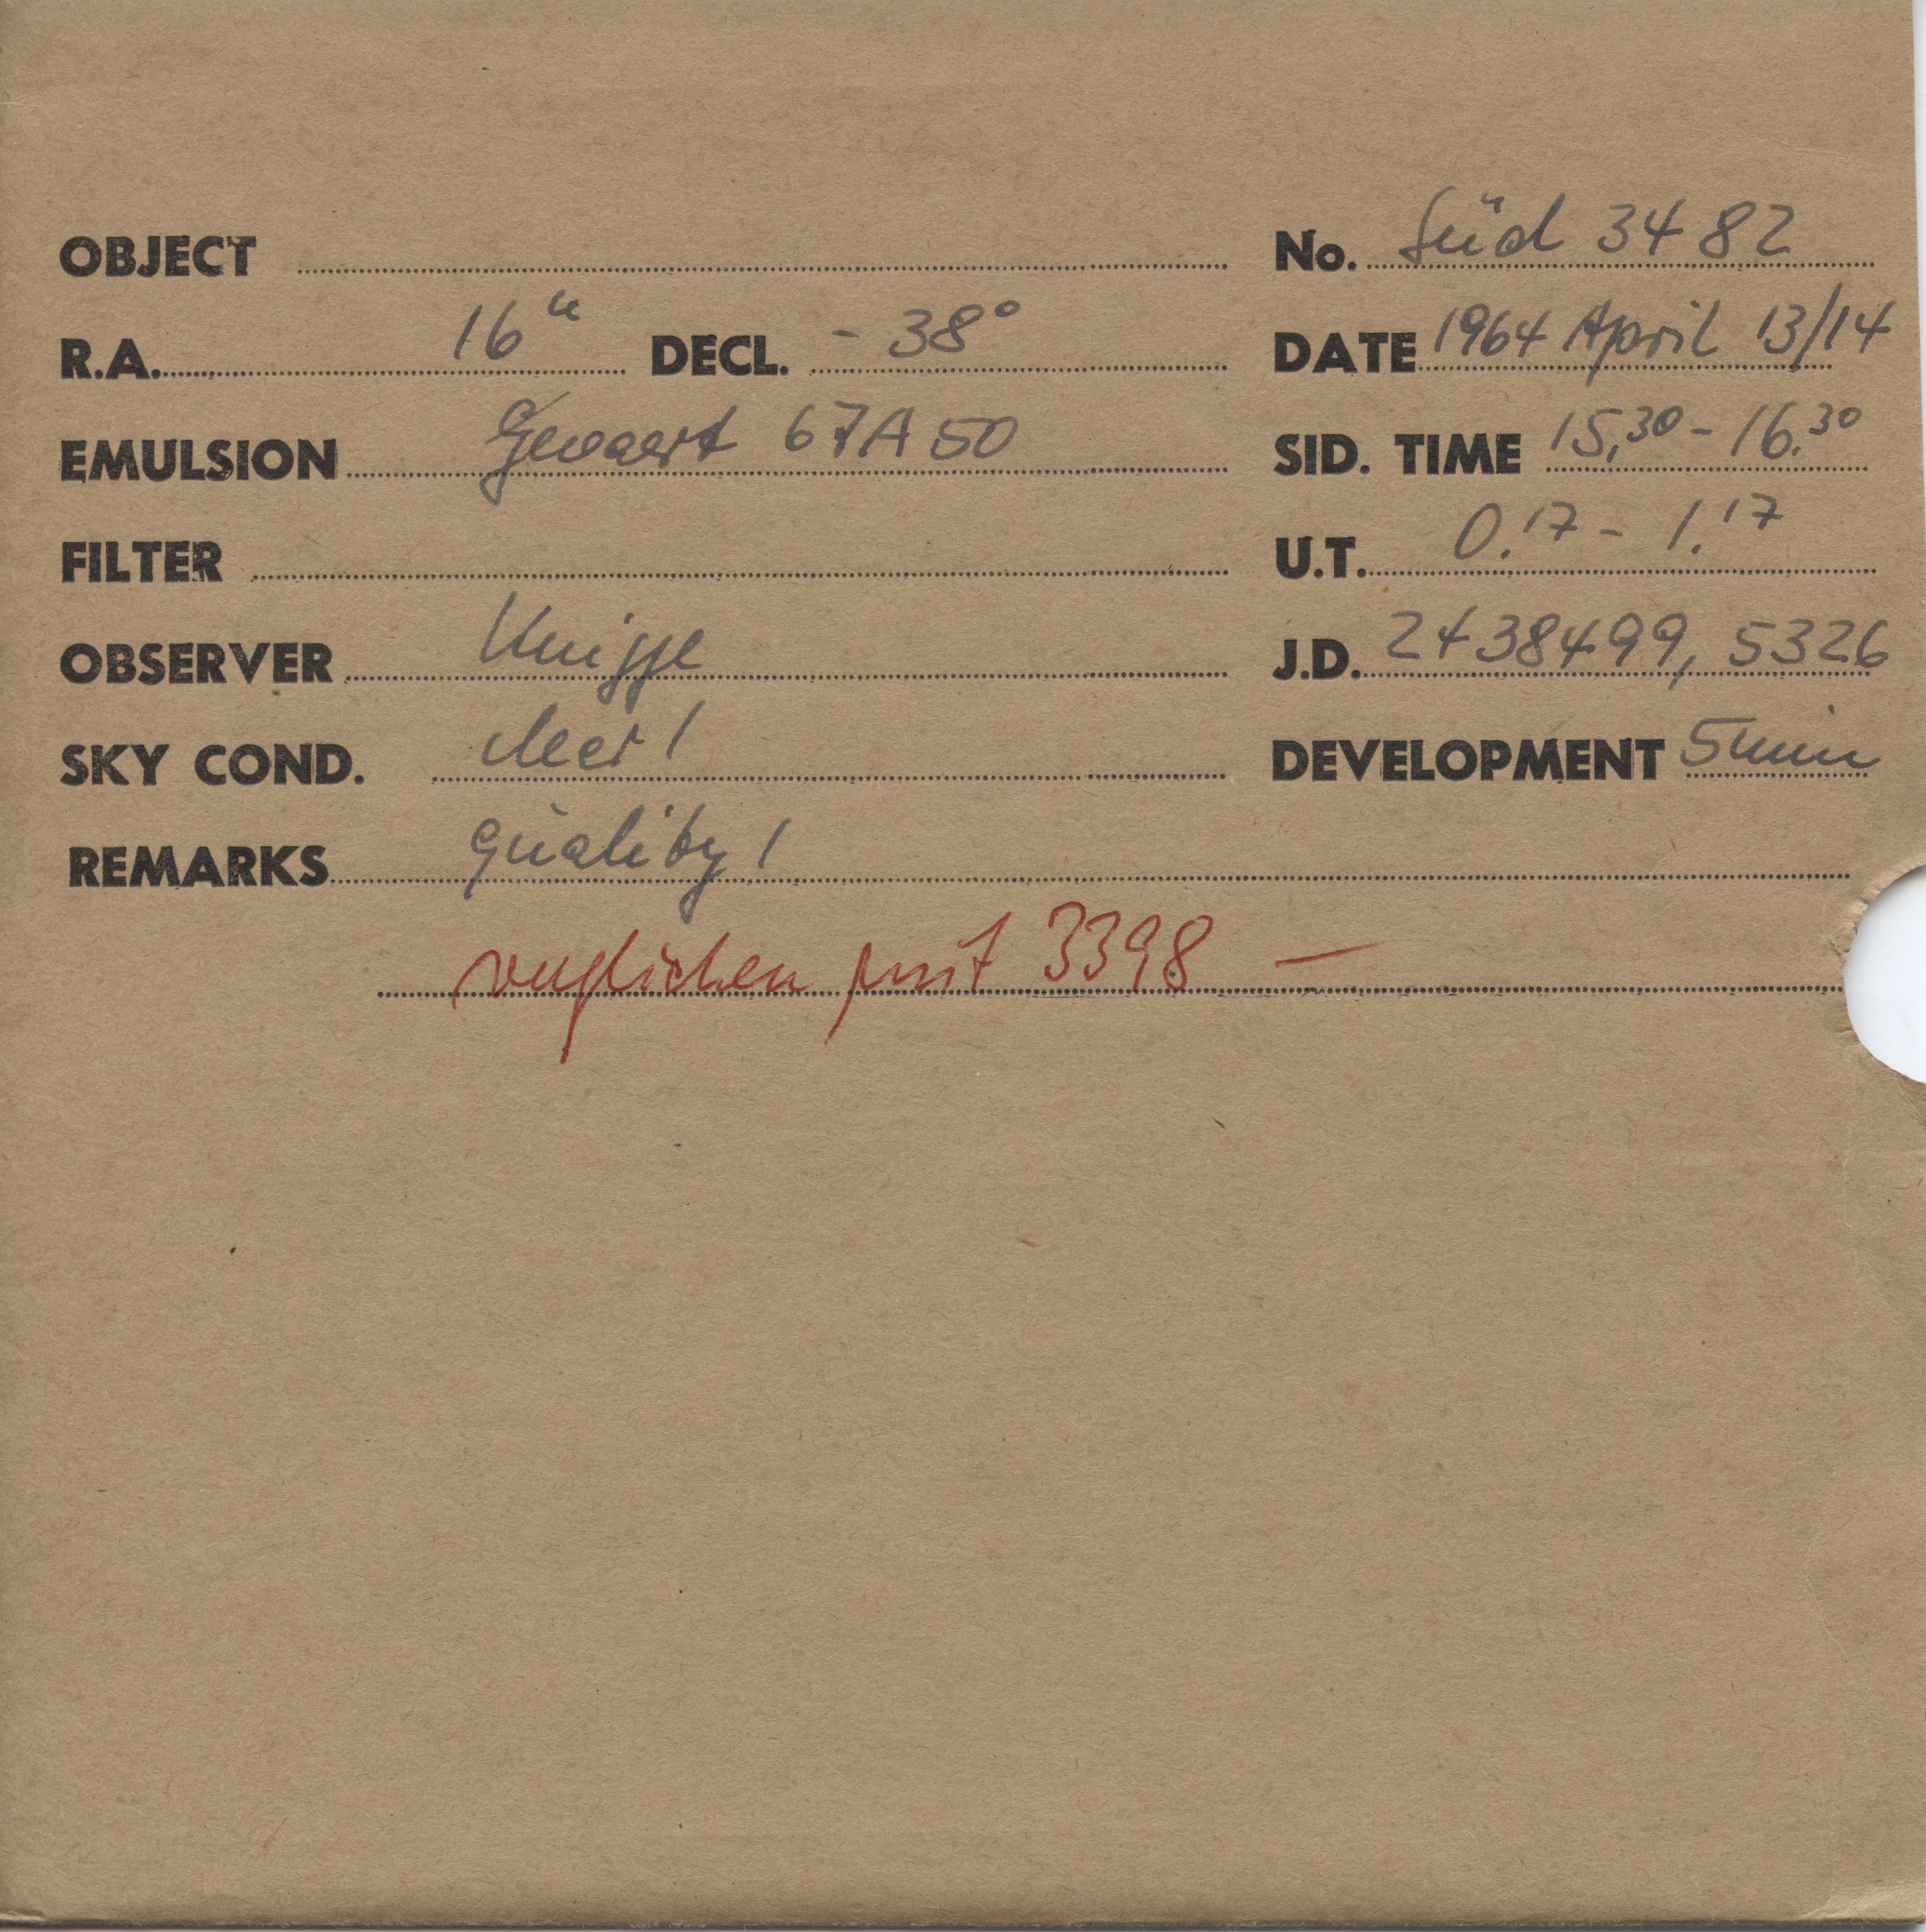 OBJECT
No. Süd 3482
R.A. 16h DECL. - 38°
DATE 1964 April 13/14
EMULSION Gevaert 67A50
SID. TIME 15.30 - 16.30
FILTER
U.T. 0.17 - 1.17
OBSERVER Knigge
J.D. 2438499,5326
SKY COND. clear 1
DEVELOPMENT 5min
REMARKS quality 1
verglichen mit 3398 —